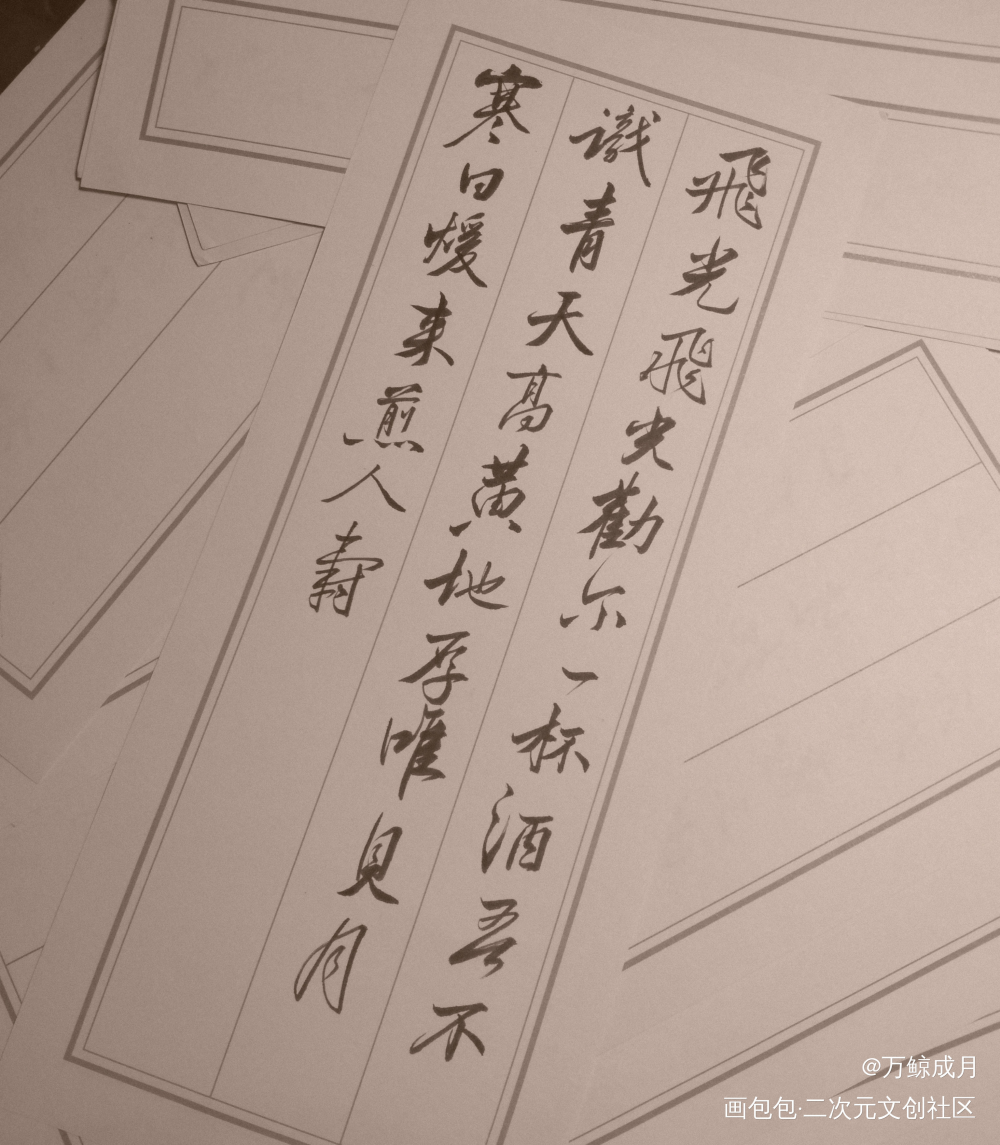 飛光飛光勸尔一杯酒吾不
識青天高黄地厚唯見月
寒日煖来煎人壽
@万鲸成月
画包包·二次元文创社区